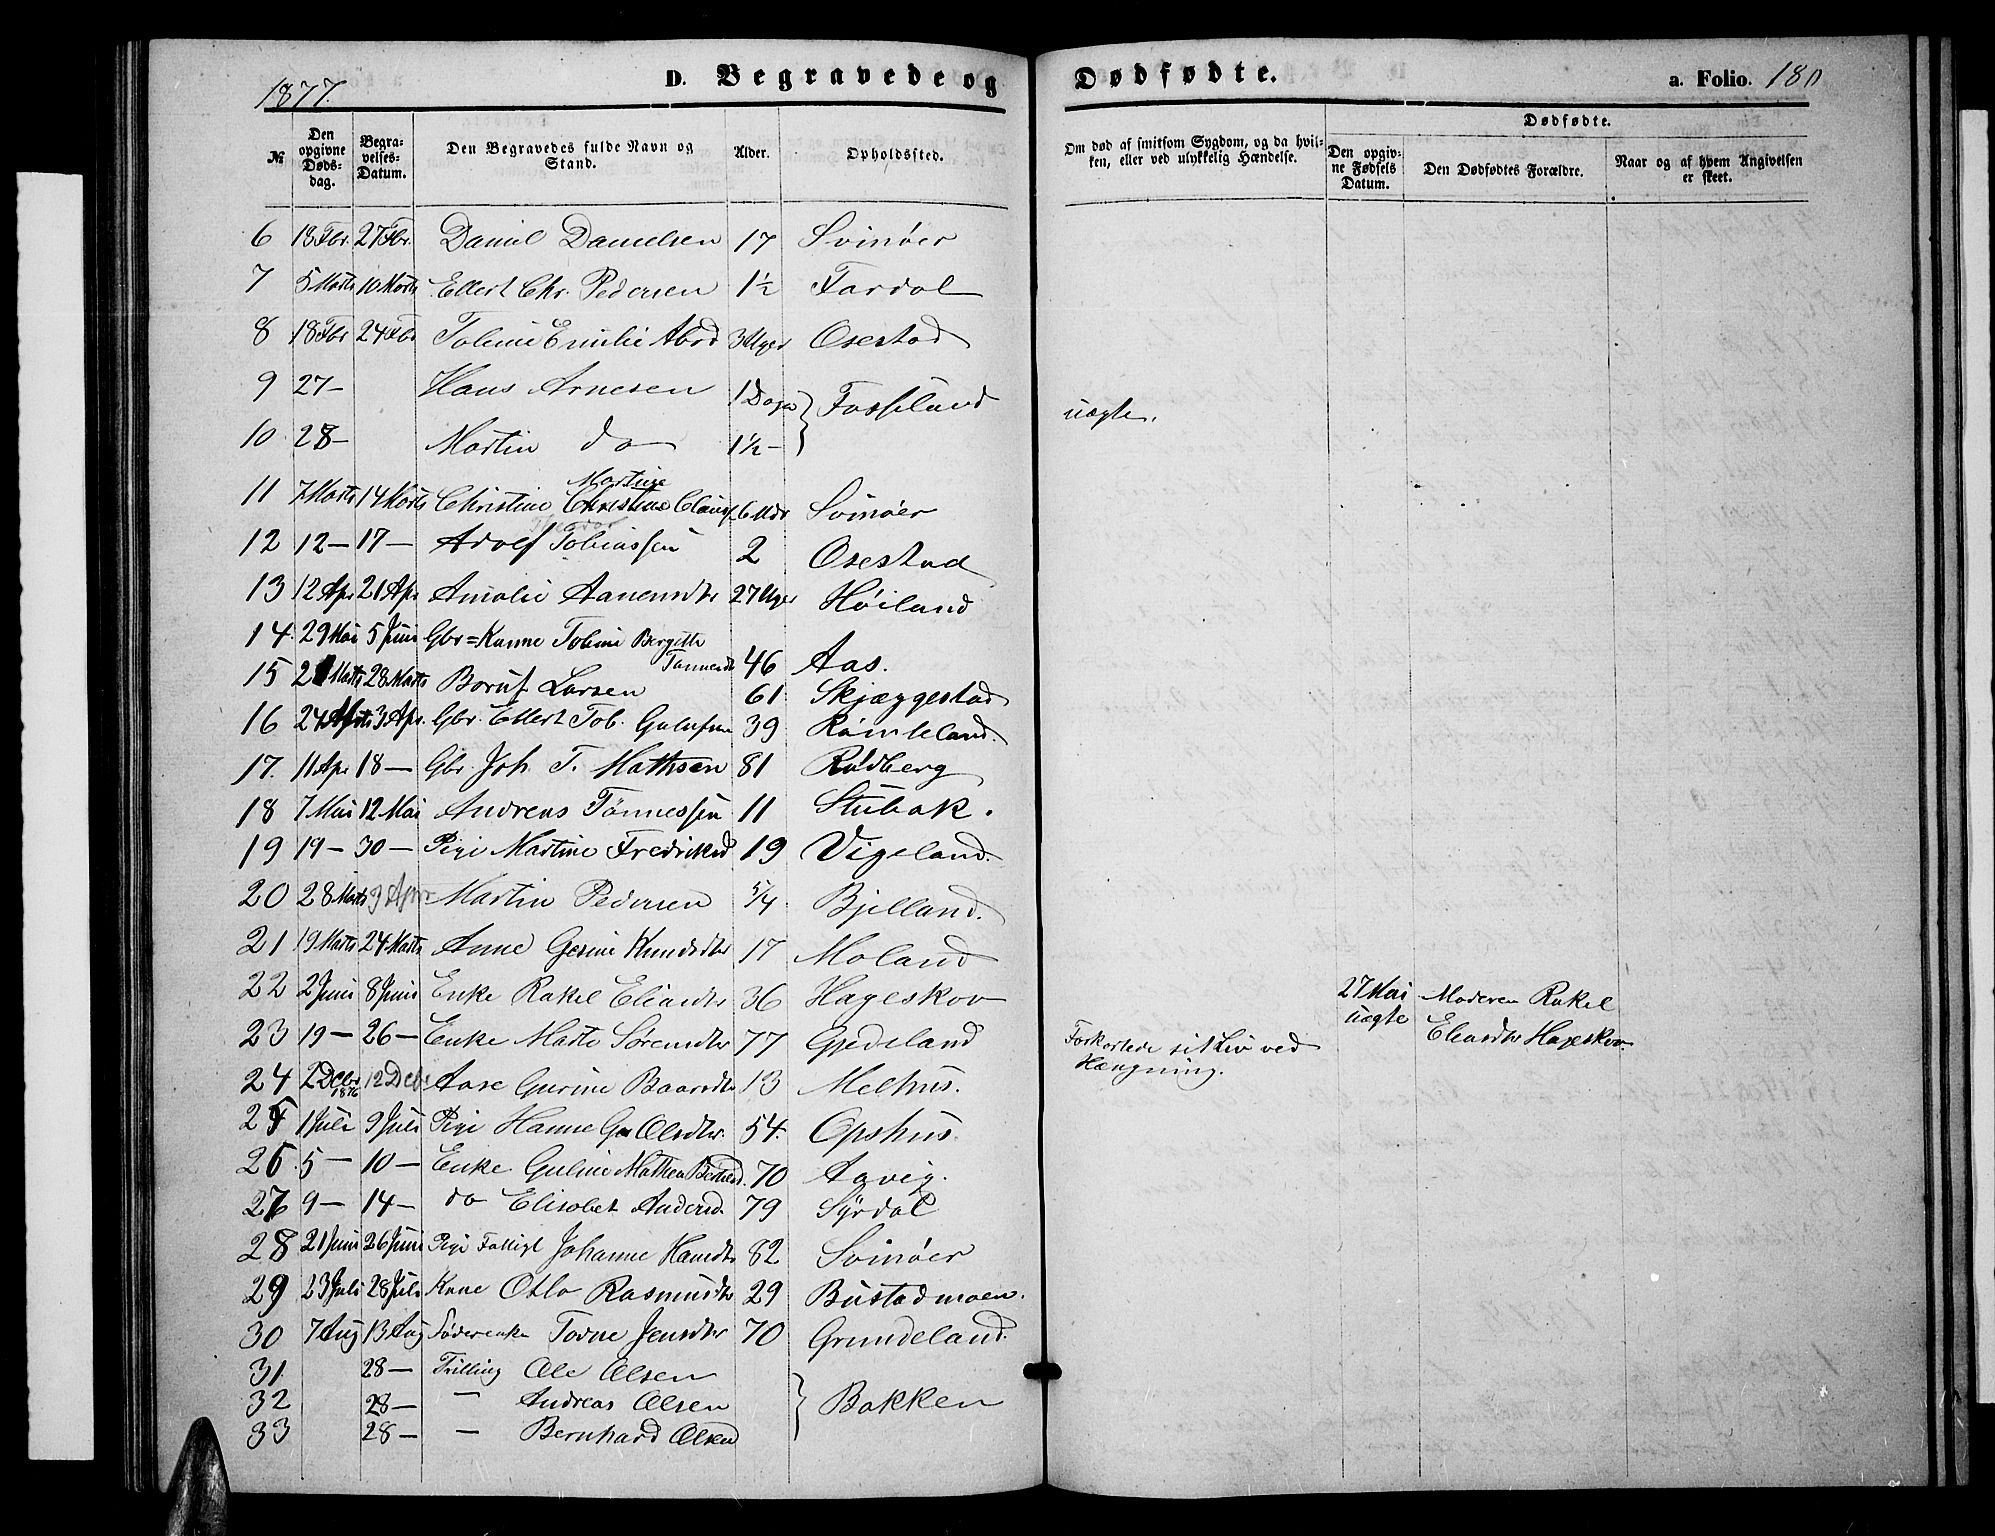 1877.
D. Begravede og Dødfødte.
a. Folio. 180
№ Den opgivne Dødsdag. Begravelses-Datum. Den Begravedes fulde Navn og Stand. Alder. Opholdssted. Om død af smitsom Sygdom, og da hvilken, eller ved ulykkelig Hændelse. Dødfødte. Den opgivne Fødsels Datum. Den Dødfødtes Forældre. Naar og af hvem Angivelsen er skeet.
6 18 Fbr. 27 Fbr. Daniel Danielsen 17 Svinøer
7 5 Marts 10 Marts Ellert Chr. Pedersen 1½ Fardal
8 18 Fbr 24 Fbr Tobine Emilie Abrd 3 Uger Osestad
9 27 — Hans Arnesen 1 Dage } Fosseland uægte.
10 28 — Martin do 1½ —
11 7 Marts 14 Marts Christine Martine Claus 6 Mdr Svinøer
12 12 — 17 — Adolf Tobiassen 2 Osestad
13 12 Apr 21 Apr Amalie Aanensdtr 27 Uger Høiland
14. 29 Mai 5 Juni Gbr = Kanne Tobine Bergitte Tønnesdt 46 Aas.
15 2 Marts 28 Marts Boruf Larsen 61 Skjæggestad
16 24 3 Apr. Gbr. Ellert Tob. 39
17. 11 Apr 18 — Gbr. Joh. T. Mathsen 81 Rødberg
18 7 Mai 12 Mai Andreas Tønnessen 11 Stubak.
19 19 — 30 — Pige Martine Fredriksd 19 Vigeland.
20 28 Marts 3 Apr Martin Pedersen 5/4 Bjelland.
21 19 Marts 24 Marts Anne Gesine Knudsdtr 17 Moland
22 2 Juni 8 Juni Enke Rakel Eliasdtr 36 Hageskov 27 Mai uægte Moderen Rakel Eliasdtr Hageskov.
23 19 — 26 — Enke Marte Sørensdtr 77 Gjedeland Forkortede sit Liv ved Hængning.
24 2 Decbr 1876 12 Decbr Aase Gurine Baardsdtr 13 Melhus.
25 1 Juli 9 Juli Pige Hanne Olsdtr. 54. Opshus.
26 5 — 10 — Enke Guline 70 Aavig.
27 9 — 14 — do Elisabet Andersd. 79 Syrdal
28 21 Juni 26 Juni Pige Fattigl Johanne Hansdtr 82 Svinøer
29 23 Juli 28 Juli Kone Otlo Rasmusdtr 29 Bustadmoen.
30 7 Aug 13 Aug Føderenke Torine Jensdtr 70 Grundeland.
31 28 — Trilling Ole Olsen
32 28 — — Andreas Olsen } Bakken
33 28 — — Bernhard Olsen